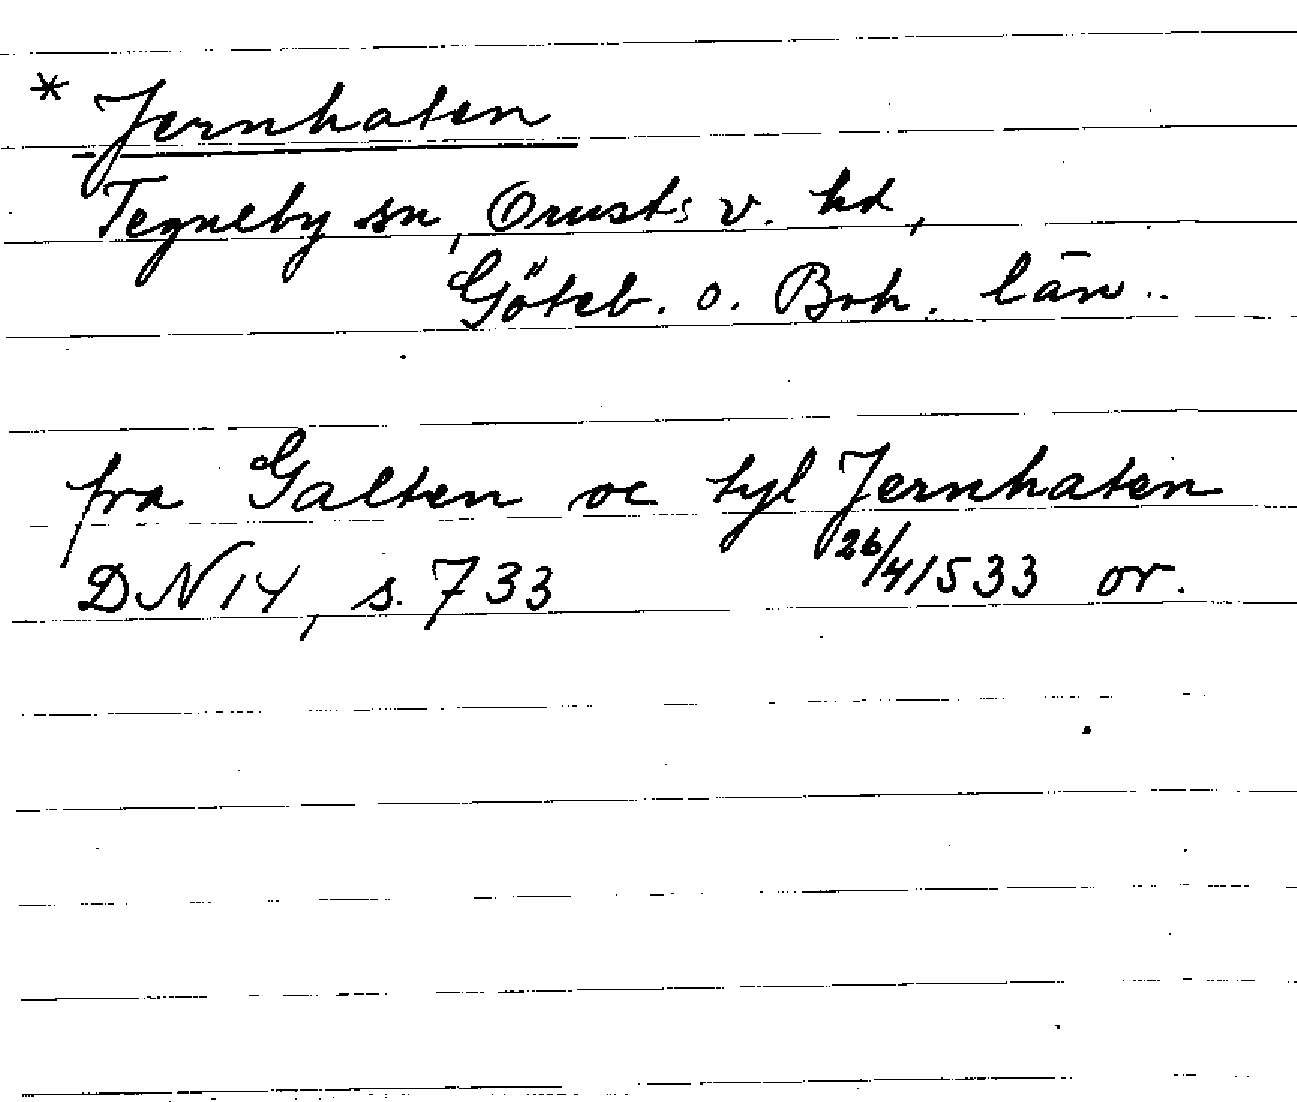 * Jernhaten
Tegneby sn, Orusts v. hd,
Göteb. o. Boh. län.
fra Galten oc tyl Jernhaten
DN 14, s. 733 26/4 1533 or.